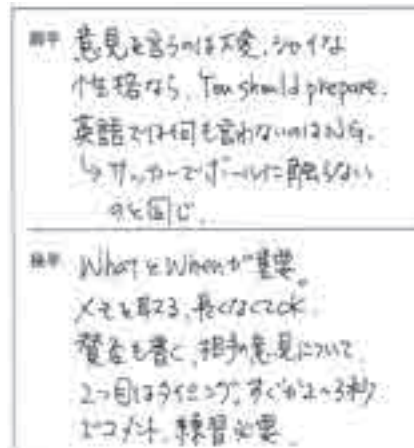 前半 意見を言うのは大変、シャイな
性格なら、You should prepare.
英語では何も言わないのはNG.
↳ サッカーでボールに触らない
のと同じ.
後半 What と When が重要。
メモを取る、長くなくてOK.
賛否も書く、相手の意見について
2つ目はタイミング、すぐか2~3秒
でコメント、練習必要